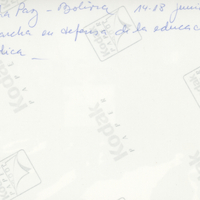 La Paz - Bolivia 14.18 junio
marcha en defensa de la educac
blica —
Kodak
Kodak
Kodak